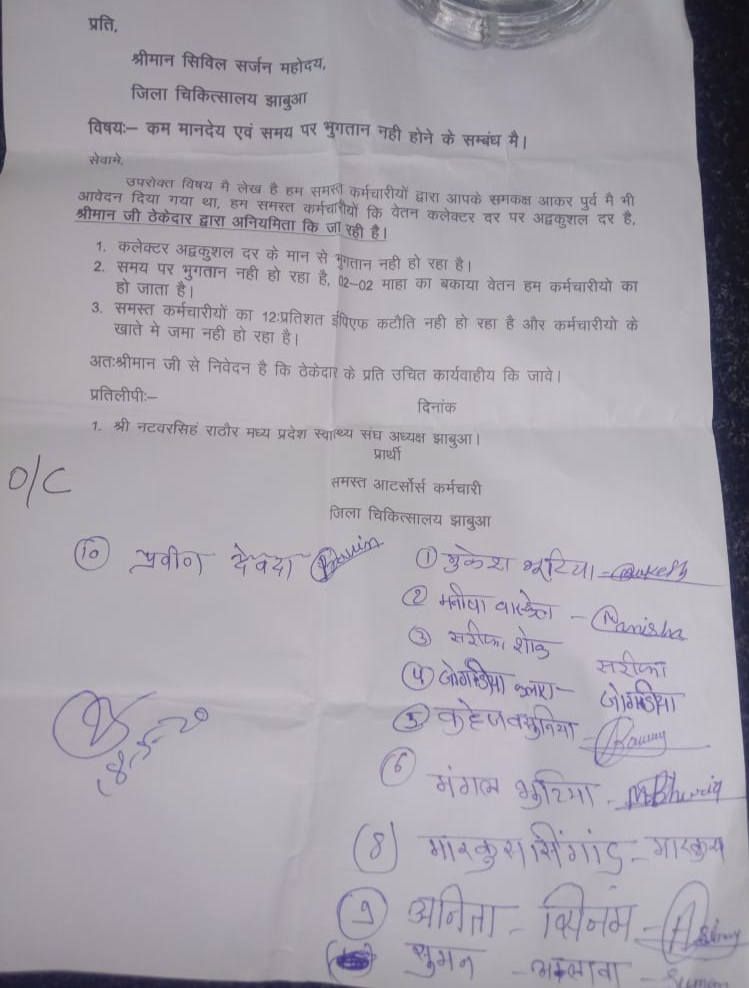 प्रति,
श्रीमान सिविल सर्जन महोदय,
जिला चिकित्सालय झाबुआ
विषयः– कम मानदेय एवं समय पर भुगतान नही होने के सम्बंध मै।
सेवामे,
उपरोक्त विषय मै लेख है हम समस्त कर्मचारीयों द्वारा आपके समकक्ष आकर पुर्व मै भी
आवेदन दिया गया था, हम समस्त कर्मचारीयों कि वेतन कलेक्टर दर पर अद्वकुशल दर है,
श्रीमान जी ठेकेदार द्वारा अनियमिता कि जा रही है।
1. कलेक्टर अद्वकुशल दर के मान से भुगतान नही हो रहा है।
2. समय पर भुगतान नही हो रहा है, 02–02 माहा का बकाया वेतन हम कर्मचारीयो का
हो जाता है।
3. समस्त कर्मचारीयों का 12:प्रतिशत ईपिएफ कटौति नही हो रहा है और कर्मचारीयो के
खाते मे जमा नही हो रहा है।
अतःश्रीमान जी से निवेदन है कि ठेकेदार के प्रति उचित कार्यवाहीय कि जावे।
प्रतिलीपीः–
दिनांक
1. श्री नटवरसिहं राठौर मध्य प्रदेश स्वास्थ्य संघ अध्यक्ष झाबुआ।
प्रार्थी
O/C
समस्त आटर्सोर्स कर्मचारी
जिला चिकित्सालय झाबुआ
(10) प्रवीण देवदा
(1) मुकेश भूरिया –
(2) मनीषा – Manisha
(3) सरीफा सरीफा
(4)
(5)
(6) मंगल भुरिया – MBhuria
(8) मारकुस सिंगाड – मारकुस
(9) अनिता –
सुमन – – Suman